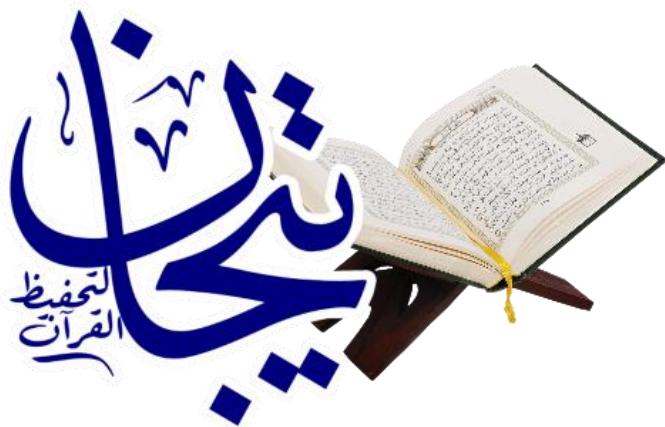 تيجان
لتحفيظ
القرآن